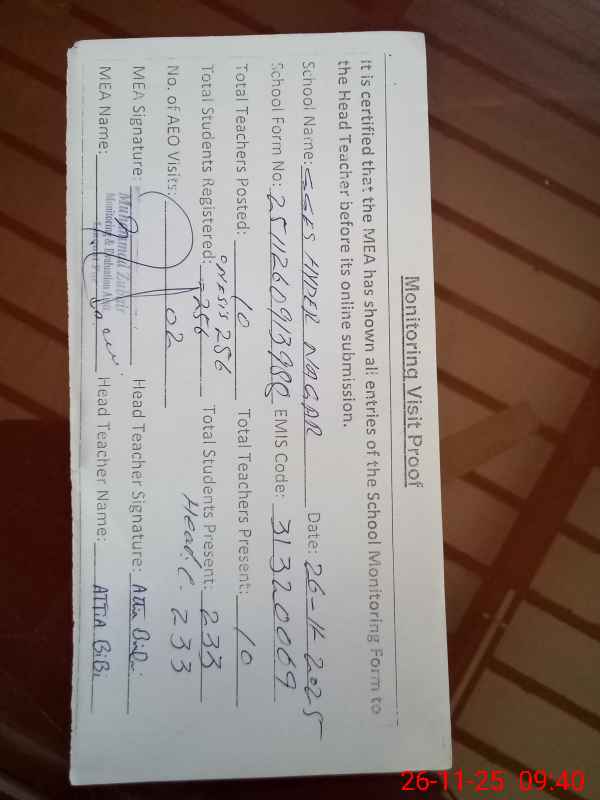 Monitoring Visit Proof
It is certified that the MEA has shown all entries of the School Monitoring Form to
the Head Teacher before its online submission.
School Name: GGES HYDER NAGAR Date: 26-11-2025
School Form No: EMIS Code: 31320069
Total Teachers Posted: 10 Total Teachers Present: 10
ON SIS 256
Total Students Registered: 256 Total Students Present: 233
Head C. 233
No. of AEO Visits: 02
MEA Signature: Head Teacher Signature: Attia Bibi
Muhammad Zubair
Monitoring & Evaluation
MEA Name: Head Teacher Name: ATTIA BiBi
26-11-25 09:40